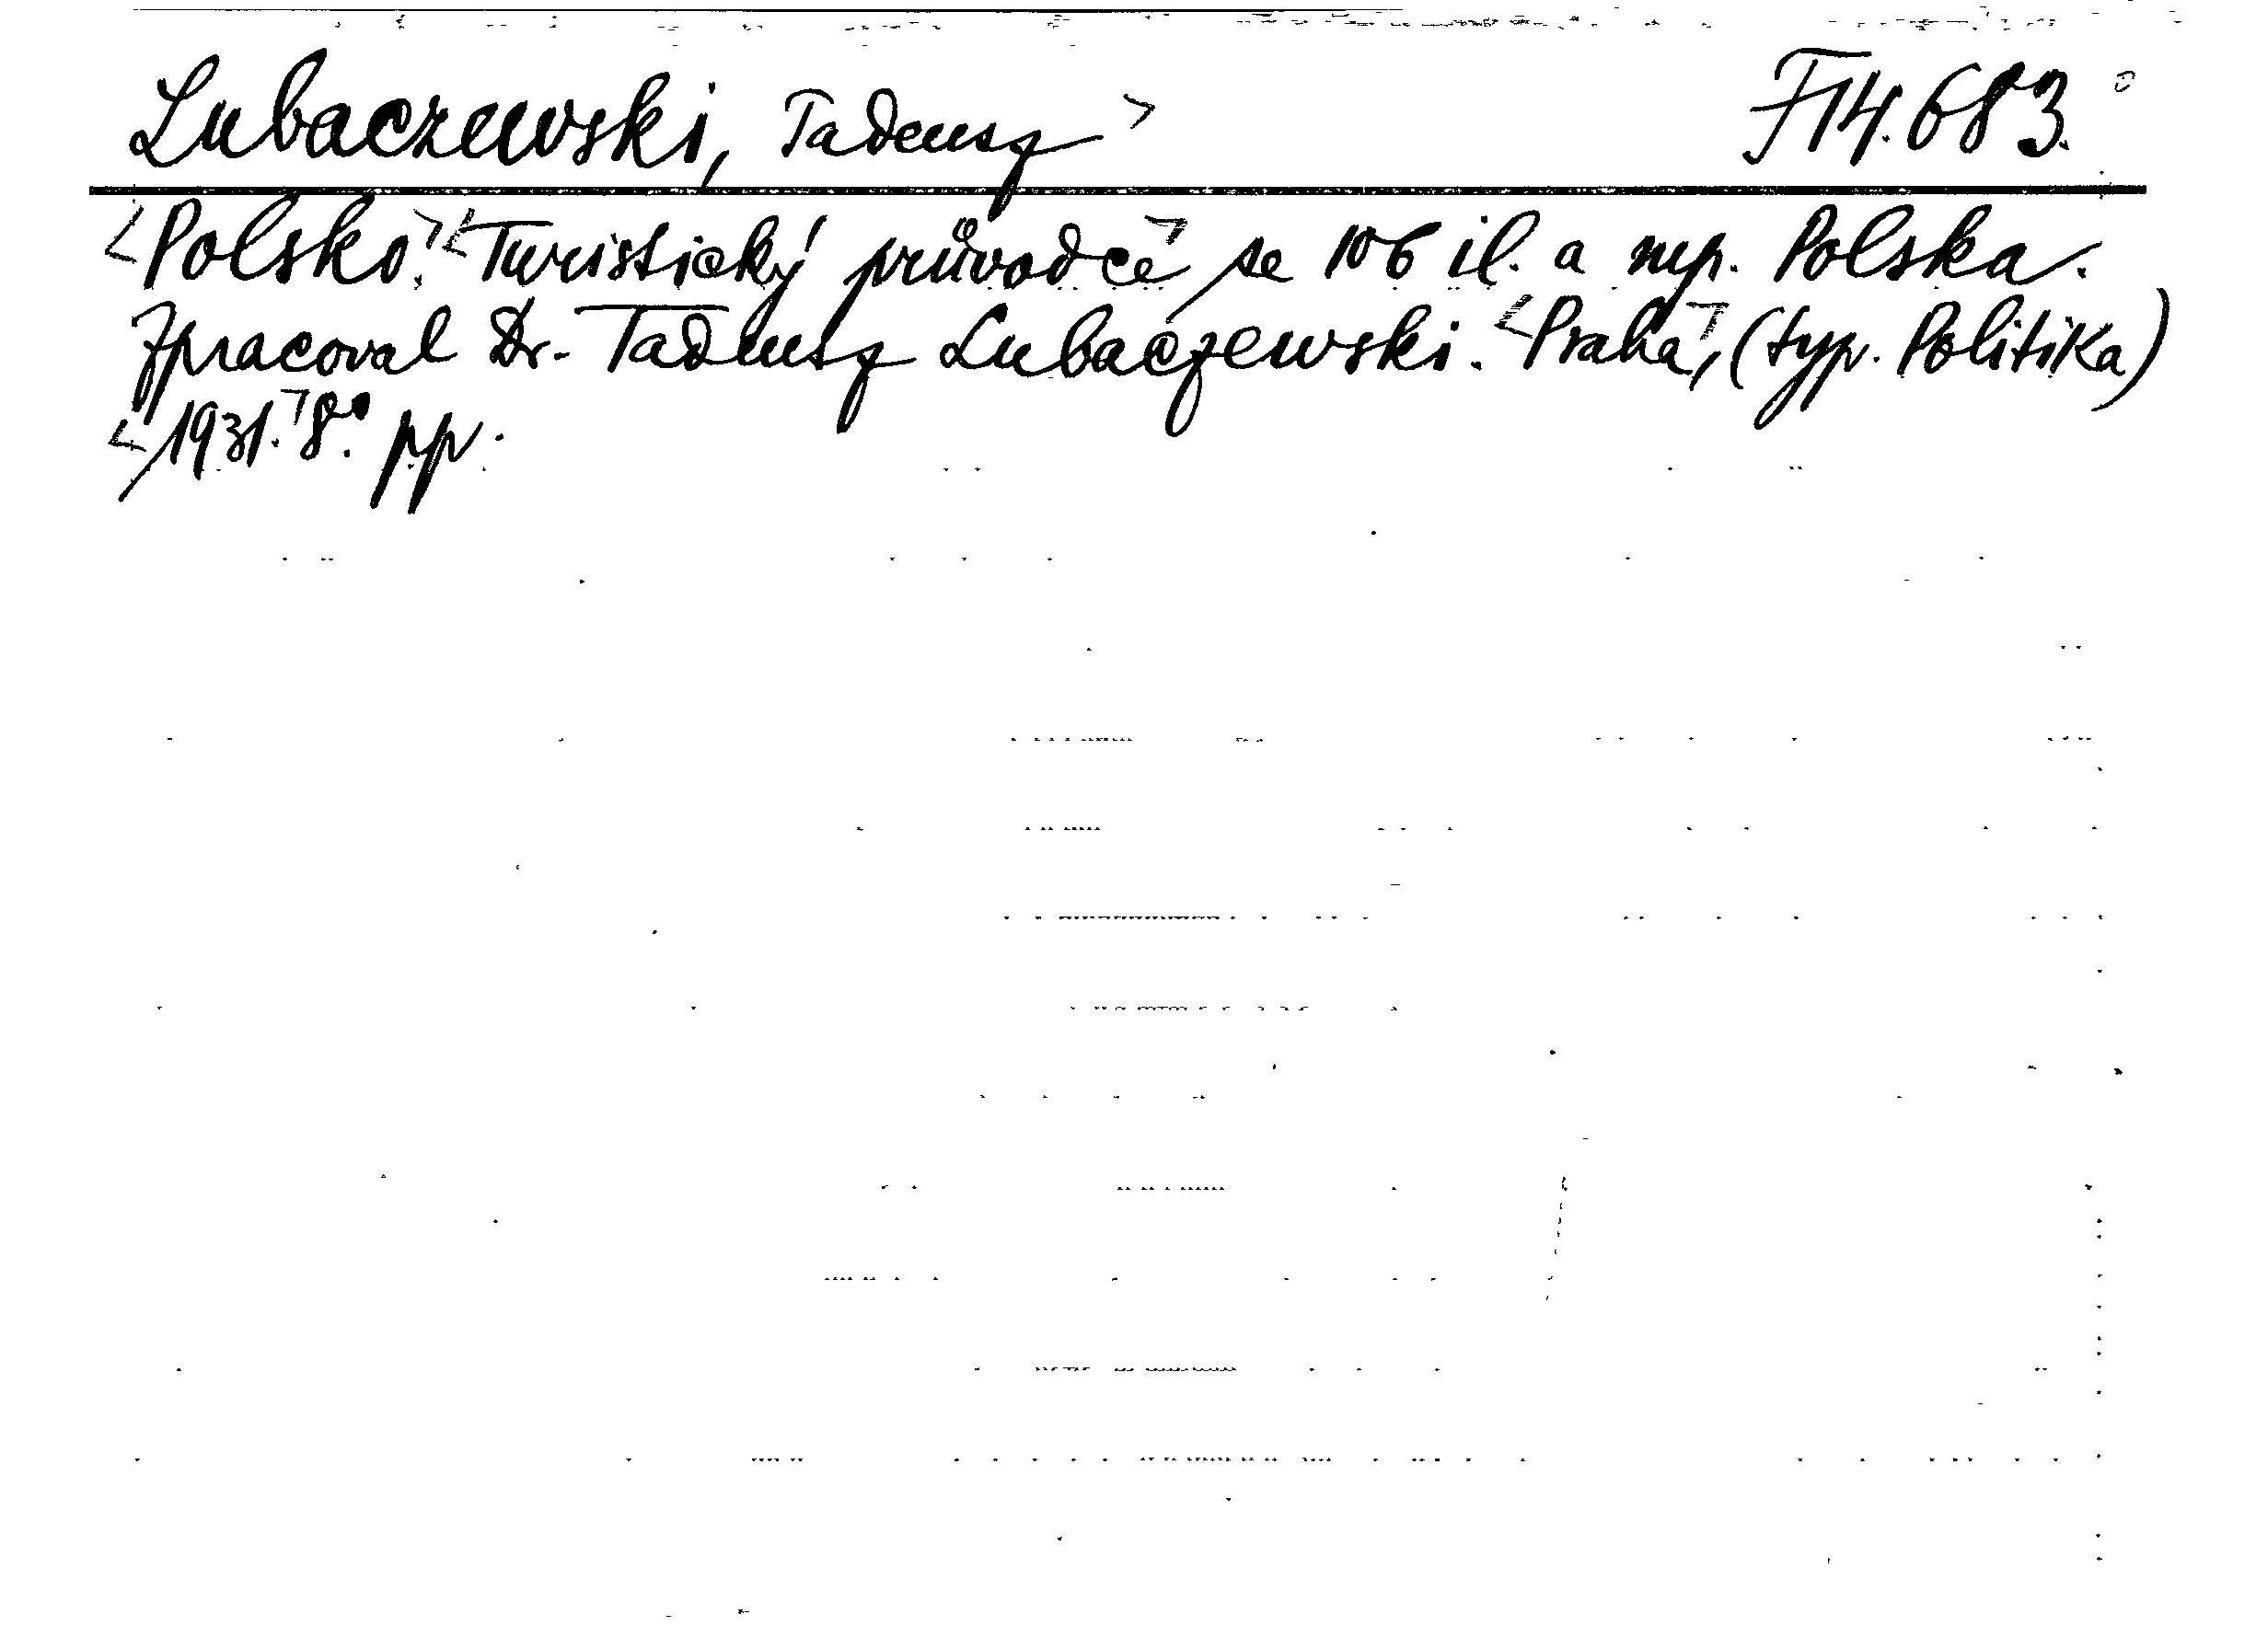 Lubaczewski, Tadeusz > F 14.683.
<Polsko.> <Turistický průvodce> se 106 il. a mp. Polska.
Zpracoval Dr. Tadeusz Lubaczewski. <Praha>, (typ. Politika)
<1931.> 8°. pp.